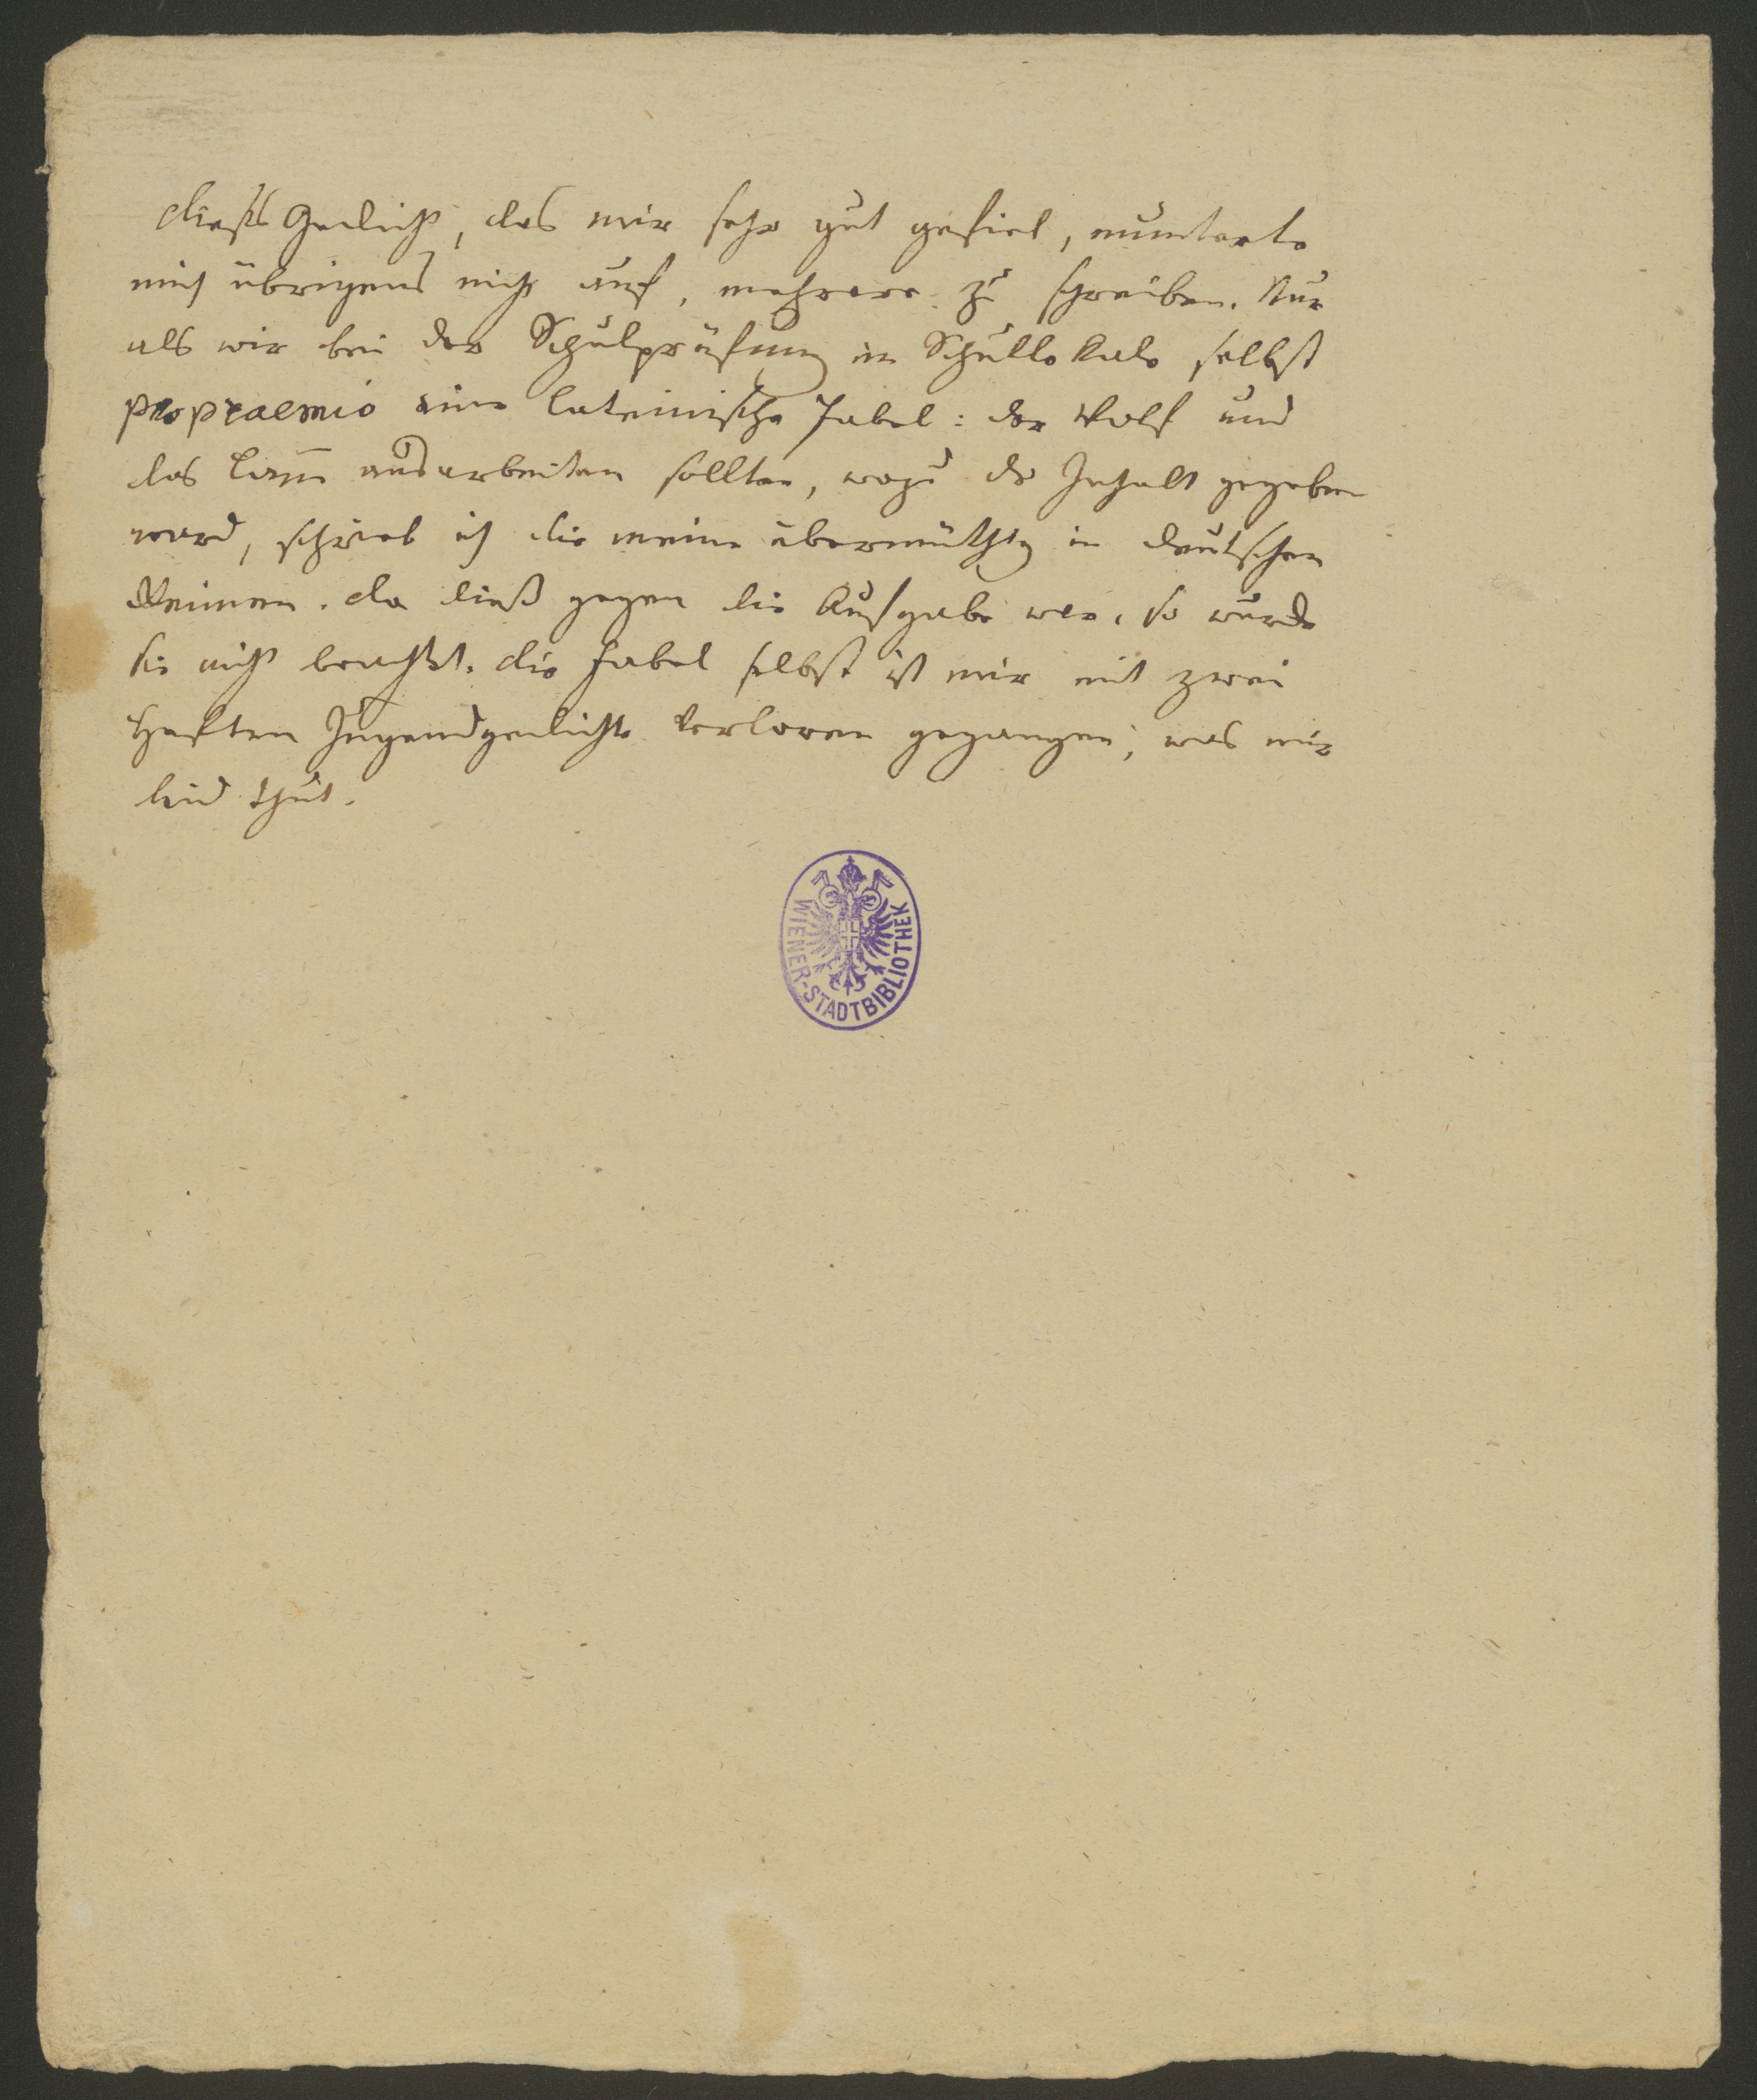 dieses Gedicht, das mir sehr gut gefiel, munterte
mich übrigens nicht auf, mehrere zu schreiben. Nur
als wir bei der Schulprüfung im Schullokale selbst
pro praemio eine lateinische Fabel: der Wolf und
das Lam̅ ausarbeiten sollten, wozu der Inhalt gegeben
ward, schrieb ich die meine übermüthig in deutschen
Reimen. da dieß gegen die Aufgabe war, so wurde
sie nicht beachtet. die Fabel selbst ist mir mit zwei
Heften Jugendgedichte verloren gegangen, was mir
leid thut.
WIENER-STADTBIBLIOTHEK